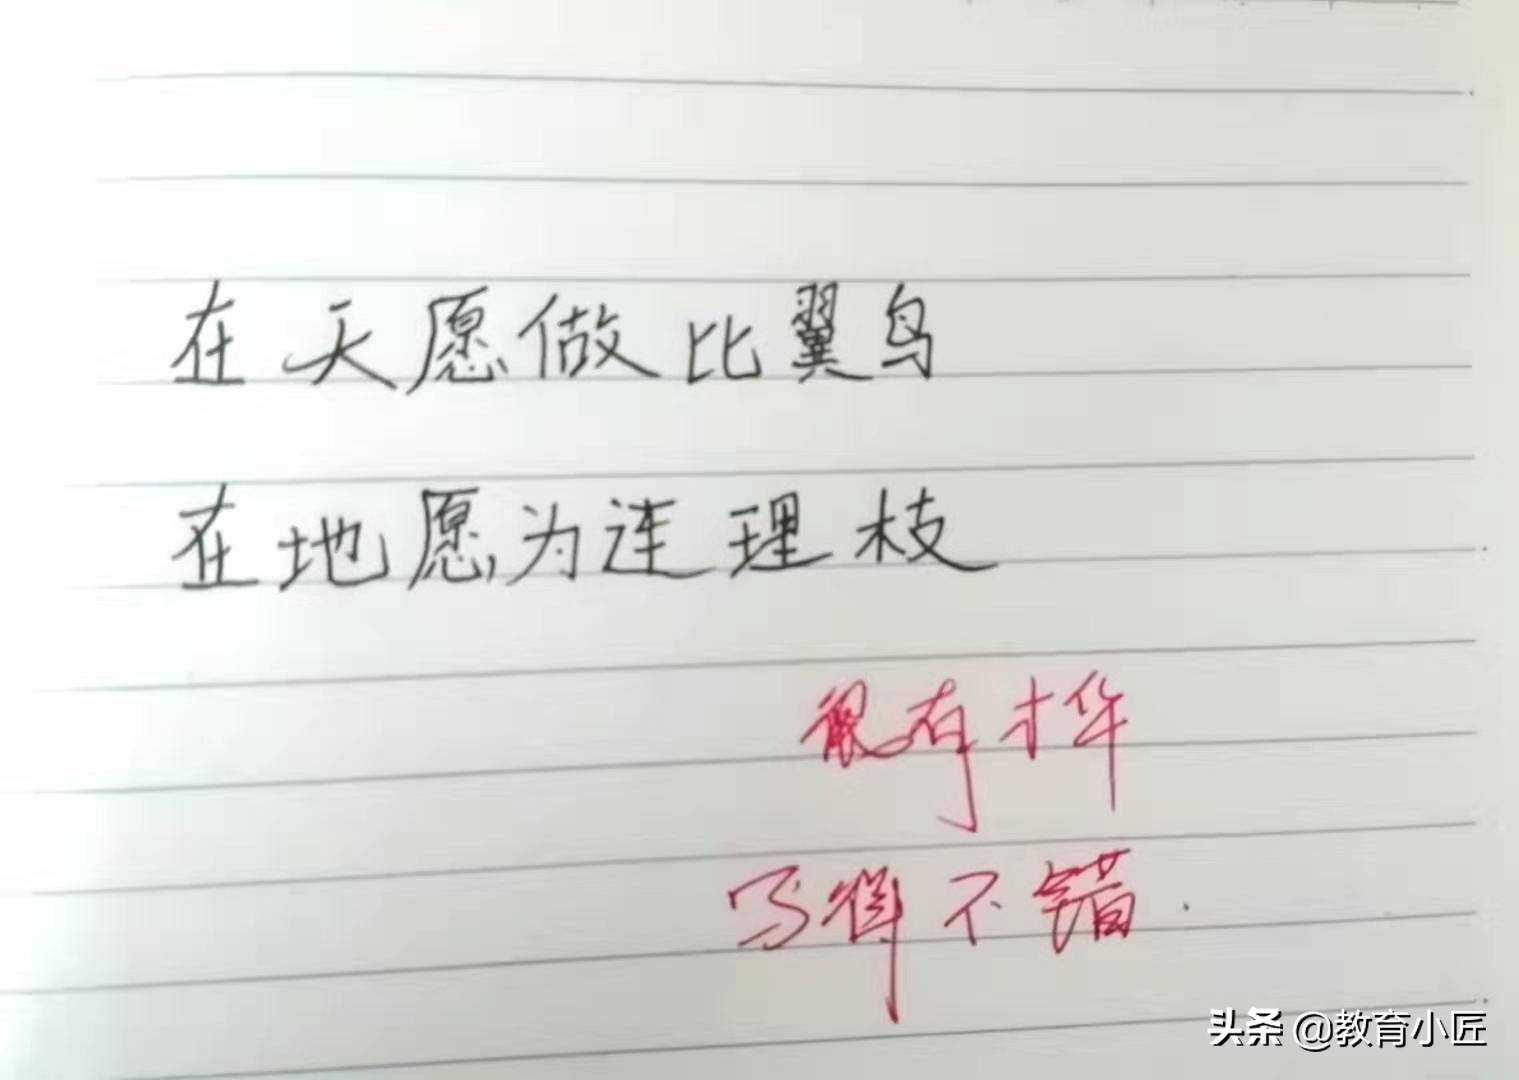 在天愿做比翼鸟
在地愿为连理枝
很有才华
写得不错.
头条 @教育小匠